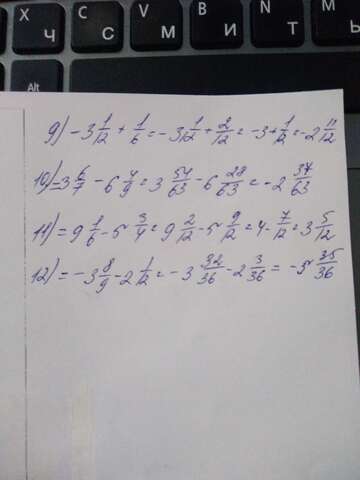 X Ч
C
V М
B И
N Т
Alt
9) -3 1/12 + 1/6 = -3 1/12 + 2/12 = -3 + 1/12 = -2 11/12
10) = 3 6/7 - 6 4/9 = 3 54/63 - 6 28/63 = -2 37/63
11) = 9 1/6 - 5 3/4 = 9 2/12 - 5 9/12 = 4 - 7/12 = 3 5/12
12) = -3 8/9 - 2 1/12 = -3 32/36 - 2 3/36 = -5 35/36